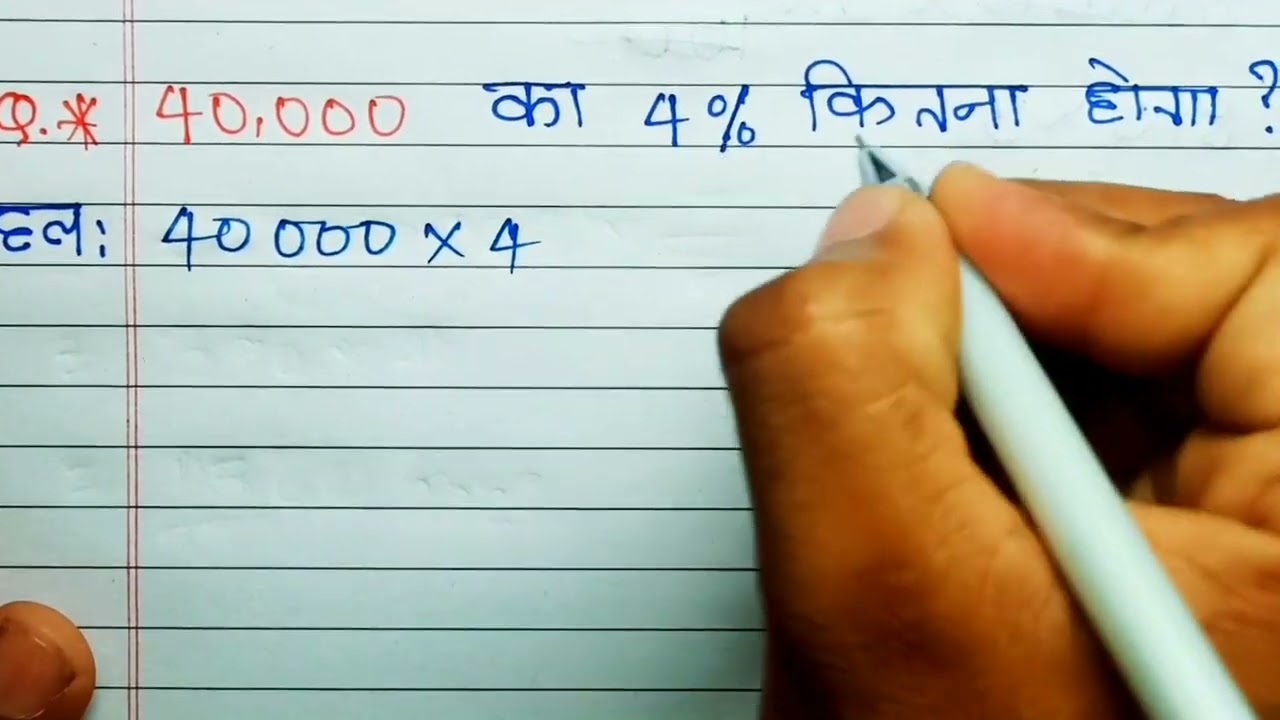 Q.* 40,000 का 4% कितना होगा?
हल: 40000 × 4